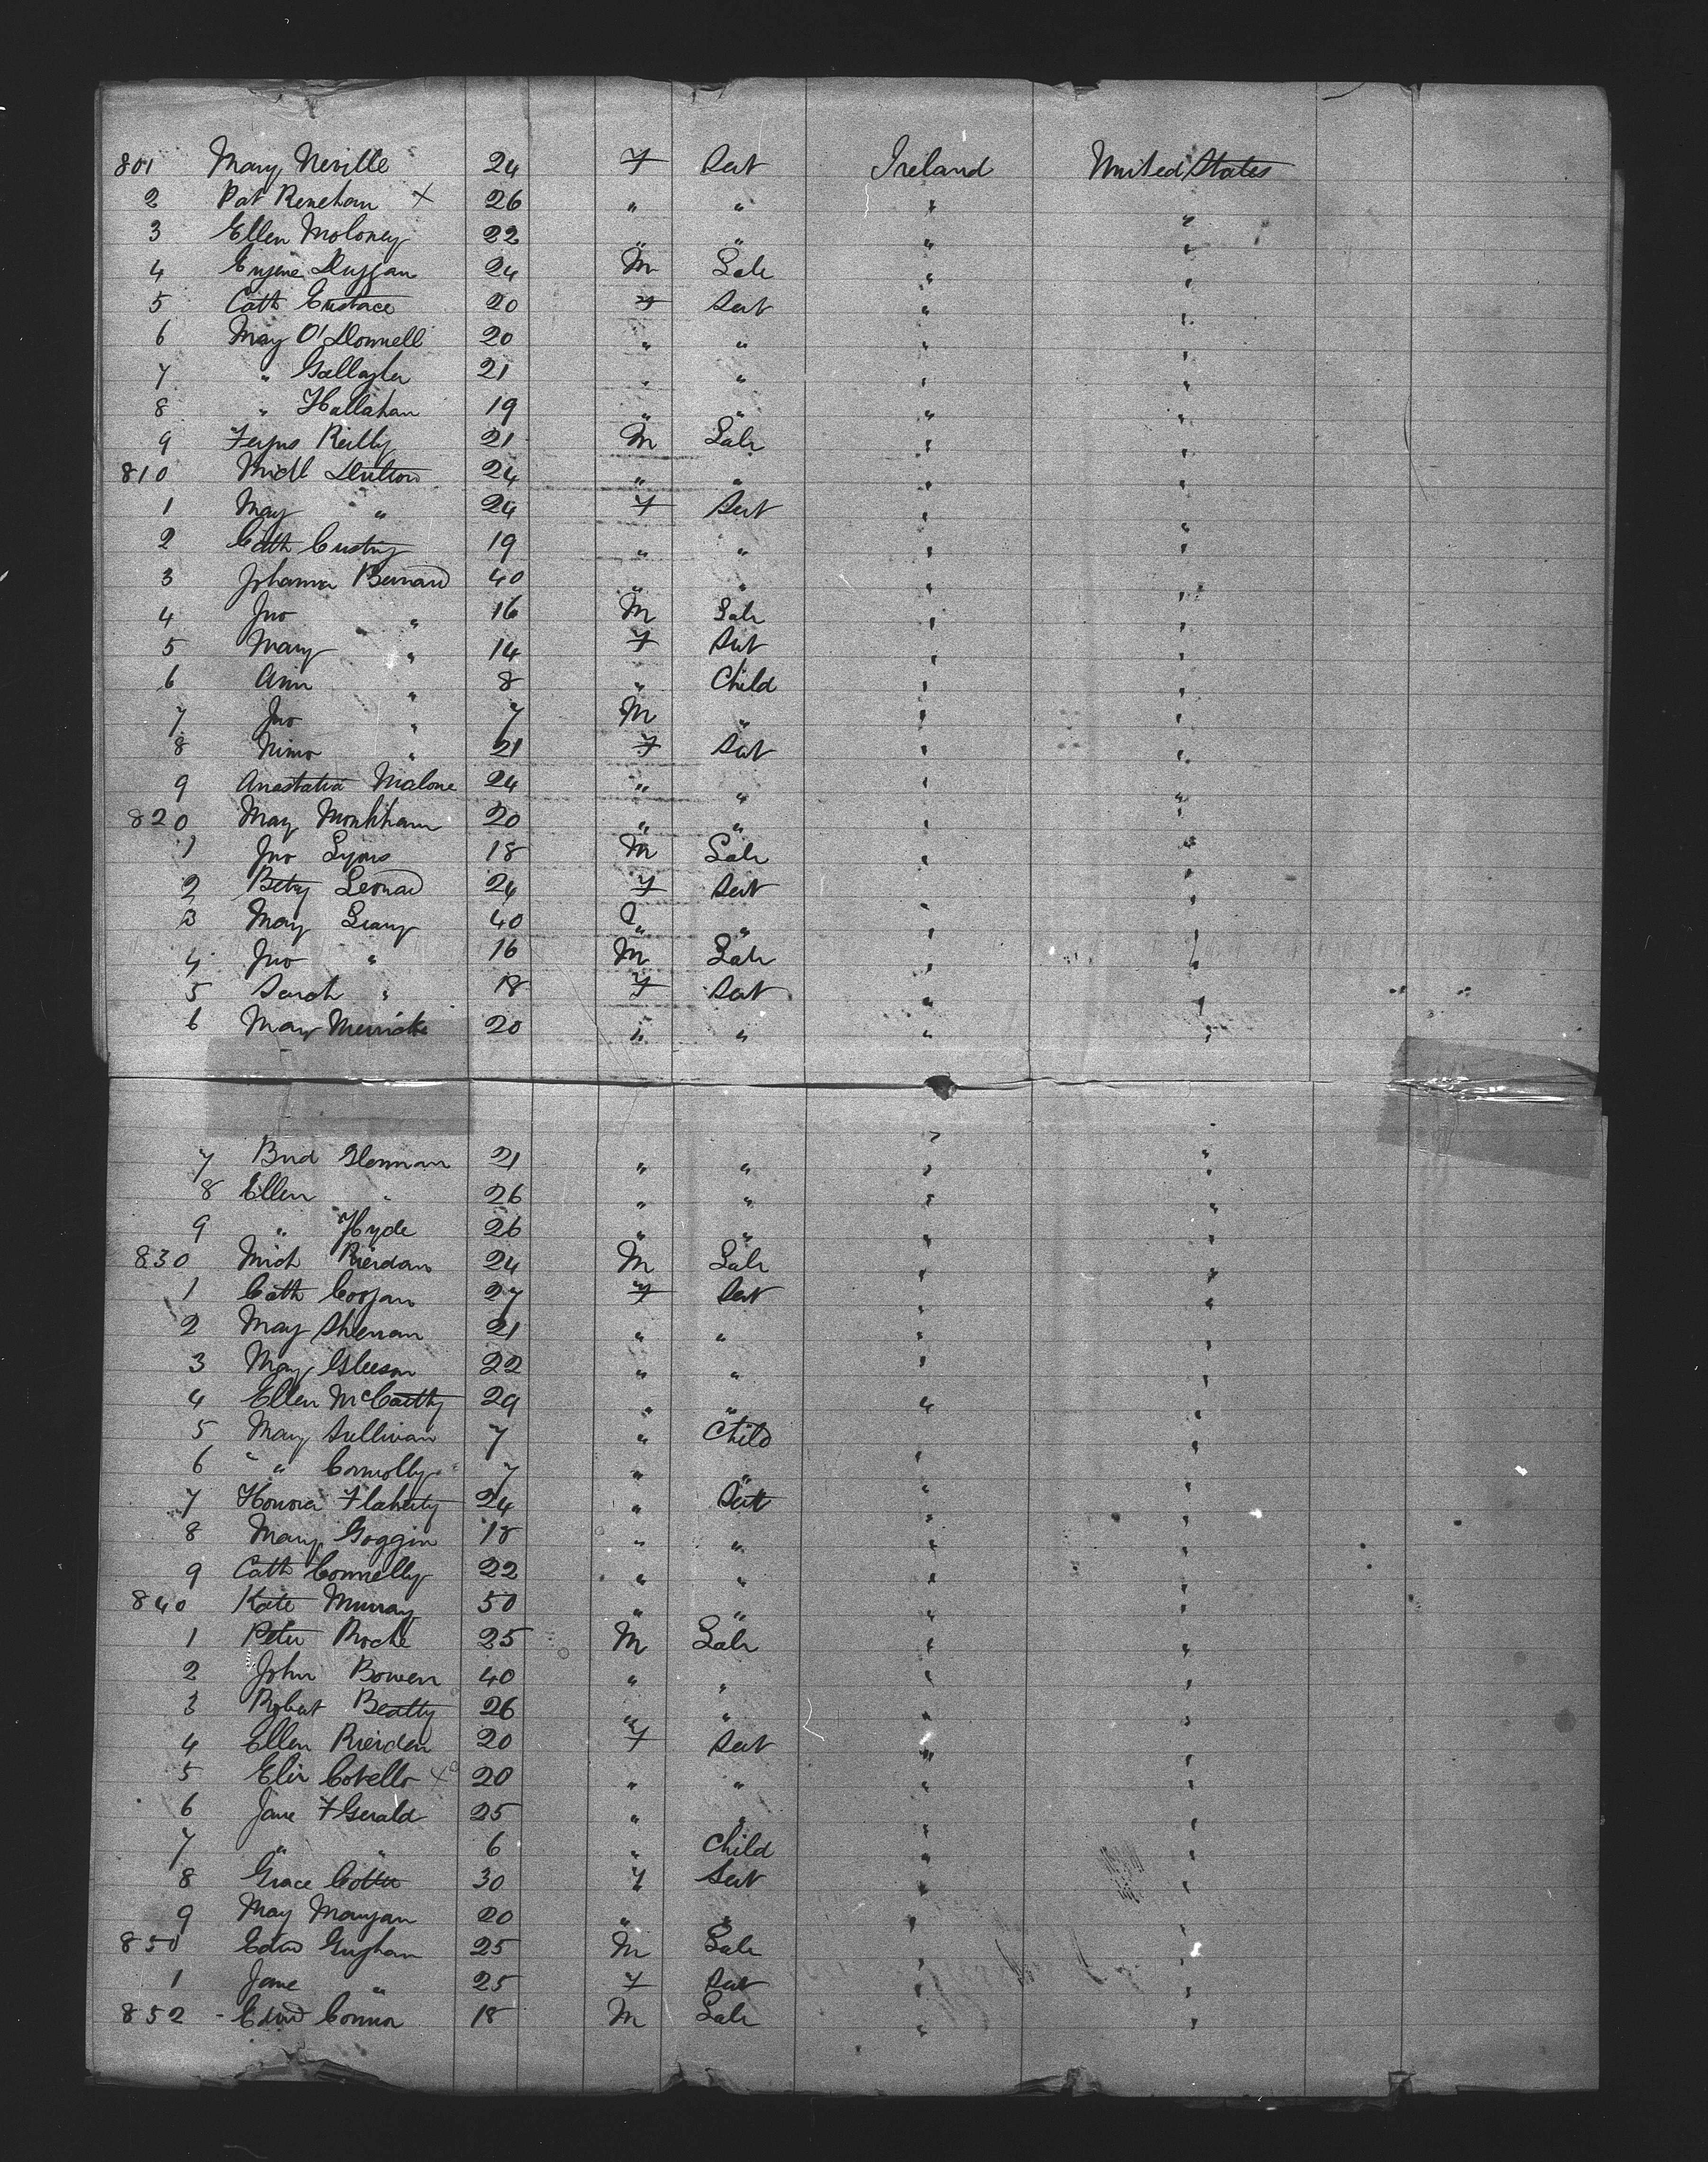 801 Mary Neville 24 F Sert Ireland United States
2 Pat Renehan X 26 " " " "
3 Ellen Moloney 22 " " " "
4 Eugene Duggan 24 M Lab " "
5 Cath Eustace 20 F Sert " "
6 May O'Donnell 20 " " " "
7 " Gallagher 21 " " " "
8 " Hallahan 19 " " " "
9 Fergus Reilly 21 M Lab " "
810 Michl 24 " " " "
1 May " 24 F Sert " "
2 Cath 19 " " " "
3 Johanna Bernard 40 " " " "
4 Jno " 16 M Lab " "
5 Mary " 14 F Sert " "
6 Ann " 8 " Child " "
7 Jno " 7 M " " "
8 " 21 F Sert " "
9 Anastatia Malone 24 " " " "
820 May Monkham 20 " " " "
1 Jno Lyons 18 M Lab " "
2 Betsy Leonard 24 F Sert " "
3 May Leary 40 " " " "
4 Jno " 16 M Lab " "
5 Sarah " 18 F Sert " "
6 May Merrick 20 " " " "
7 Brid Glennan 21 " " " "
8 Ellen " 26 " " " "
9 " Hyde 26 " " " "
830 Mich Rierdan 24 M Lab " "
1 Cath Coogan 27 F Sert " "
2 May Sheenan 21 " " " "
3 May Gleeson 22 " " " "
4 Ellen McCarthy 29 " " " "
5 Mary Sullivan 7 " Child " "
6 " Connolly 7 " " " "
7 Honora Flaherty 24 " Sert " "
8 Mary Goggin 18 " " " "
9 Cath Connelly 22 " " " "
840 Kate Murray 50 " " " "
1 Peter Roche 25 M Lab " "
2 John Bowen 40 " " " "
3 Robert Beatty 26 " " " "
4 Ellen Rierden 20 F Sert " "
5 Eliz Cotello X 20 " " " "
6 Jane FGerald 25 " " " "
7 " " 6 " Child " "
8 Grace Cotter 30 F Sert " "
9 May Mangan 20 " " " "
850 Edwd 25 M Lab " "
1 Jane " 25 F Sert " "
852 - Edwd Connor 18 M Lab " "